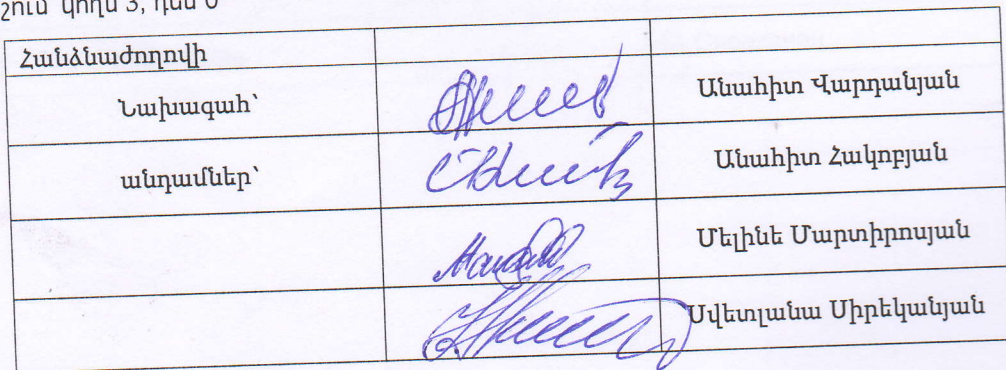 կողմ 3, դեմ 0
Հանձնաժողովի
Նախագահ՝ Անահիտ Վարդանյան
անդամներ՝ Անահիտ Հակոբյան
Մելինե Մարտիրոսյան
Սվետլանա Սիրեկանյան